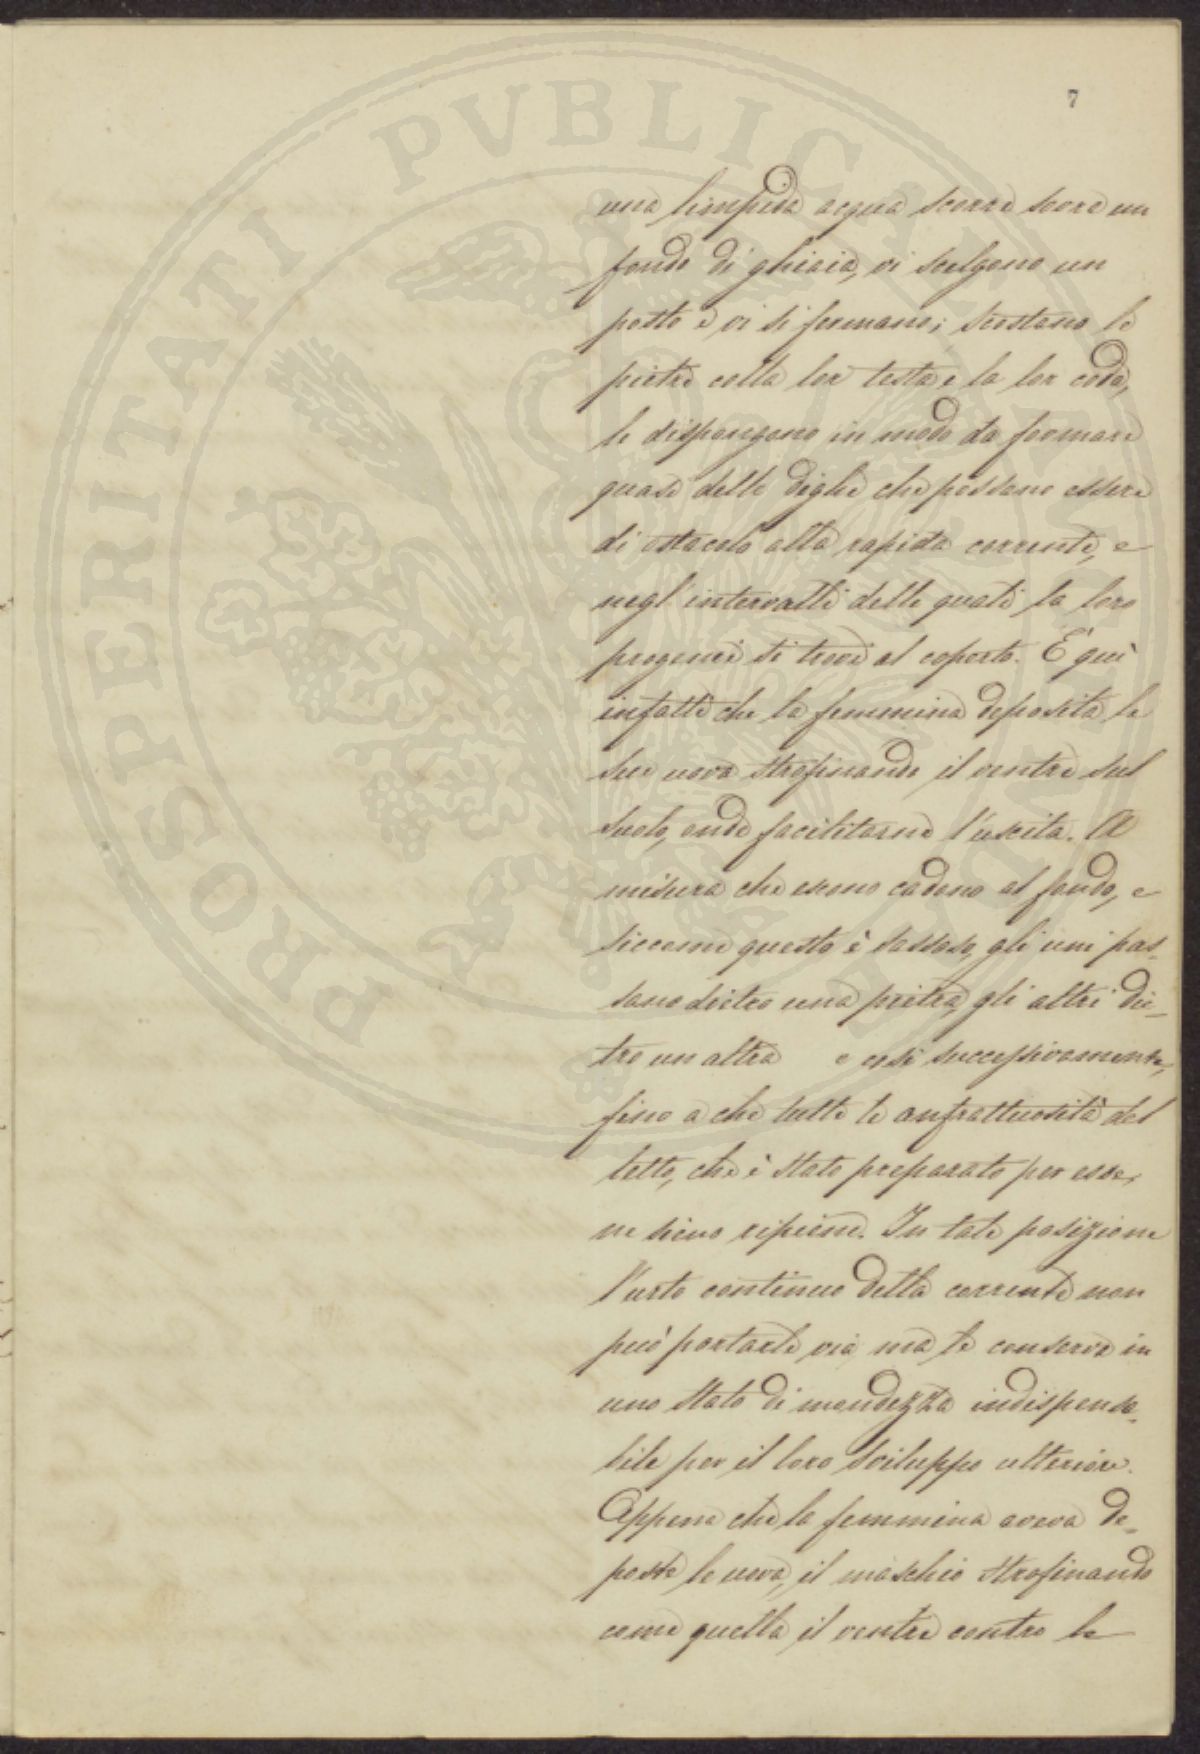 7
una limpida acqua scorre sovra un
fondo di ghiaia, vi scelgono un
posto e vi si fermano; scostano le
pietre colla lor testa e la lor coda,
le dispongono in modo da formare
quasi delle dighe che possono essere
di ostacolo alla rapida corrente, e
negl'intervalli delle quali la loro
progenie si trovi al coperto. E quì
infatti che la femmina deposita le
sue uova strofinando il ventre sul
suolo, onde facilitarne l'uscita. A
misura che escono cadono al fondo, e
siccome questo è sassoso, gli uni pas-
sano dietro una pietra, gli altri die-
tro un altra e così successivamente,
fino a che tutte le anfrattuosità del
letto, che è stato preparato per esse,
ne sieno ripiene. In tale posizione
l'urto continuo della corrente non
può portarle via, ma le conserva in
uno stato di mondezza indispensa-
bile per il loro sviluppo ulteriore.
Appena che la femmina aveva de-
poste le uova, il maschio strofinando
come quella il ventre contro le
PROSPERITATI PVBLICAE